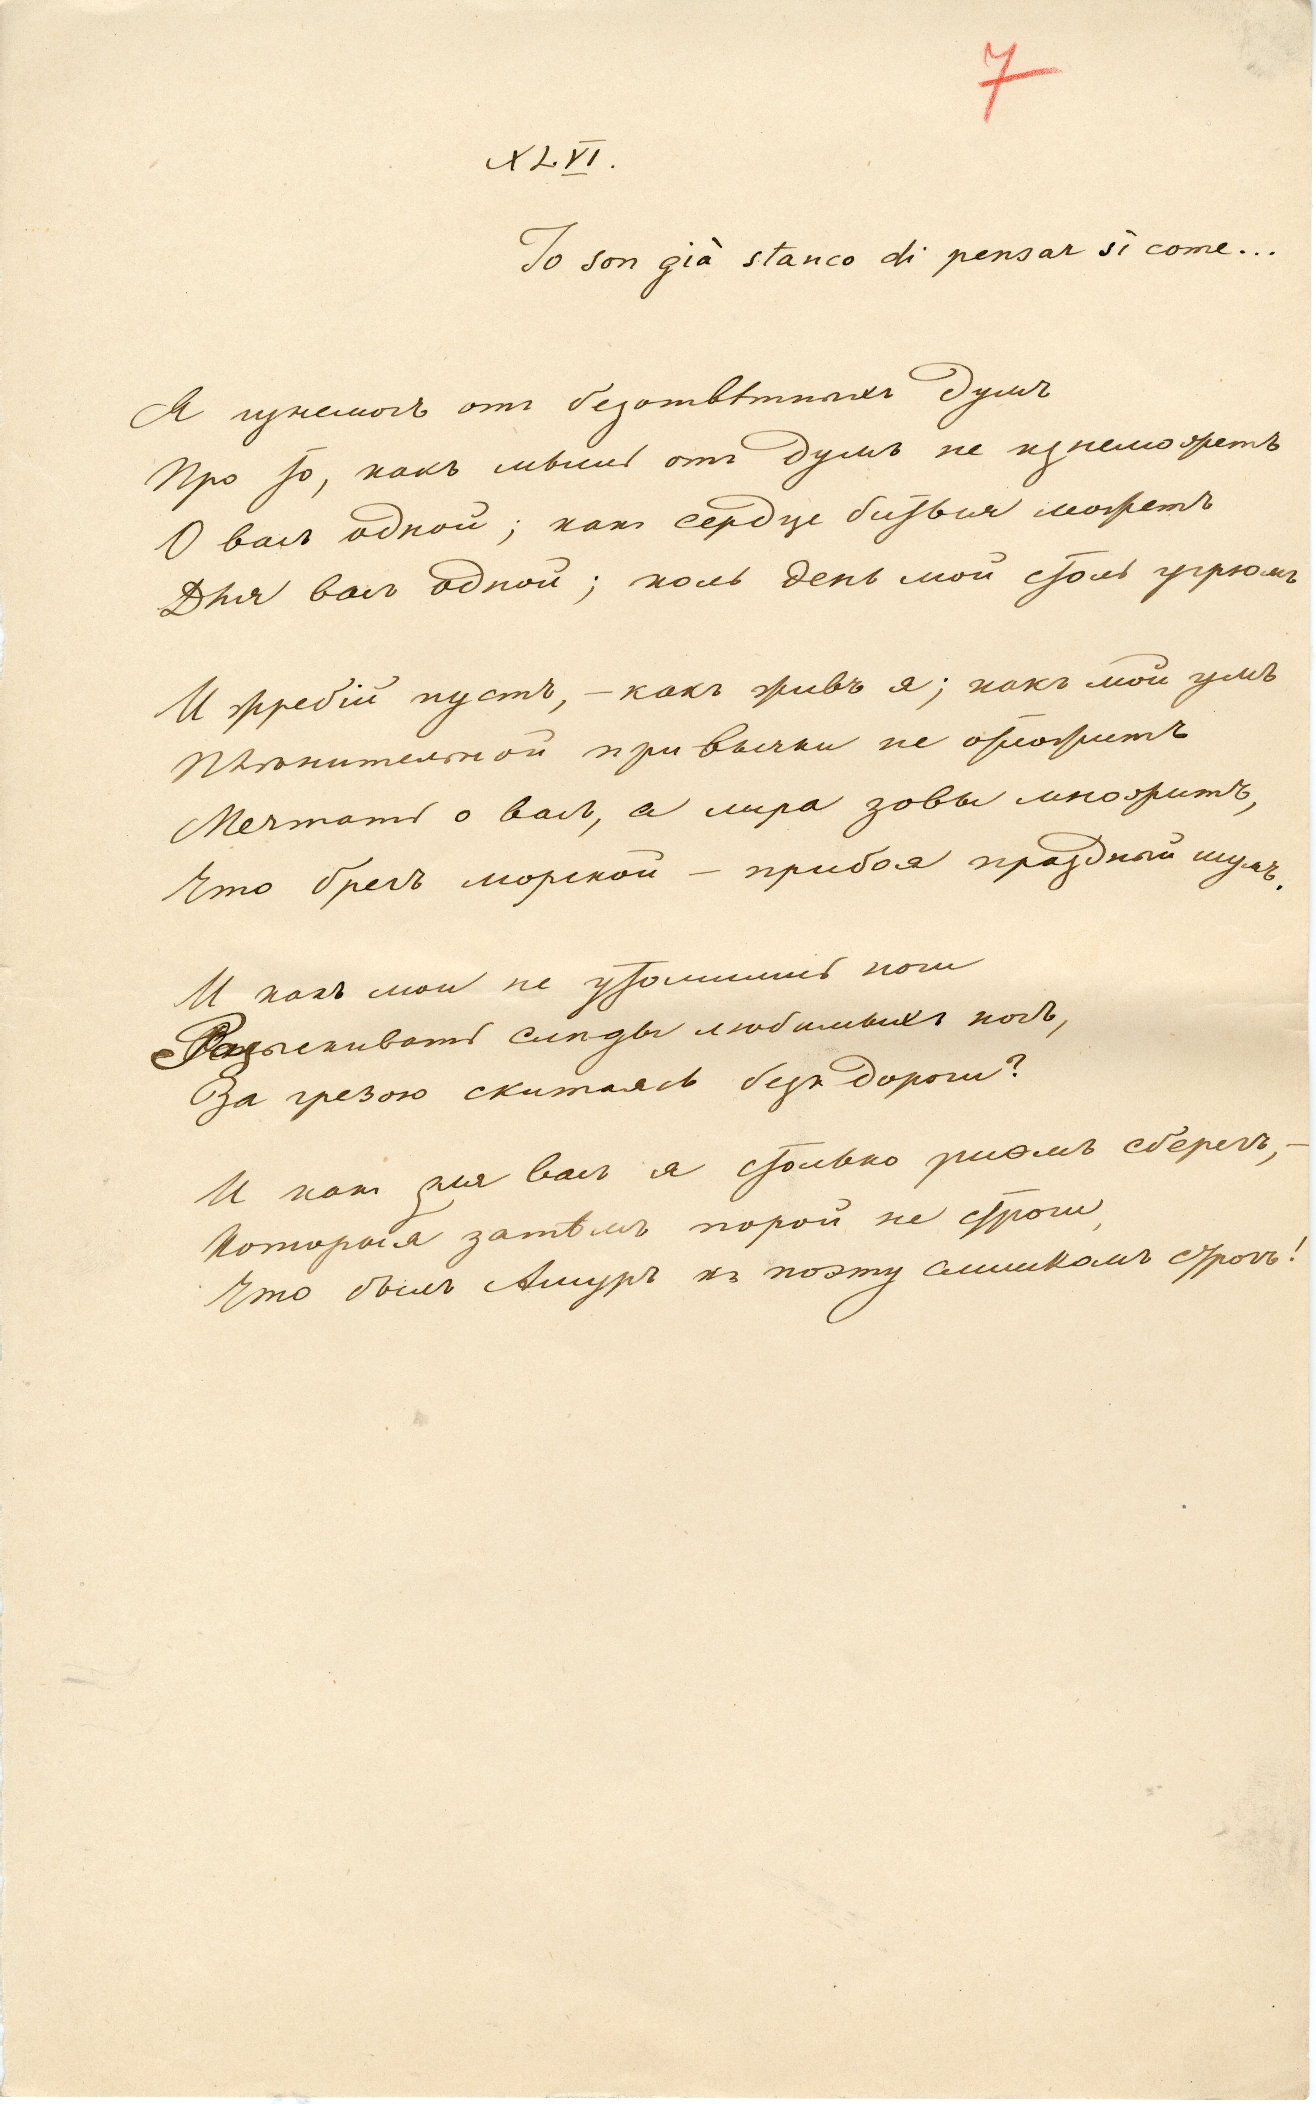 7
XLVI.
Io son già stanco di pensar sì come...
Я изнемогъ отъ безотвѣтныхъ думъ
Про то, какъ мысль отъ думъ не изнеможетъ
О васъ одной; какъ сердце биться можетъ
Для васъ одной; коль день мой столь угрюмъ
И жребій пустъ, – какъ живъ я; какъ мой умъ
Плѣнительной привычки не отложитъ
Мечтать о васъ, а лира зовы множитъ,
Что брегъ морской – прибоя праздный шумъ.
И какъ мои не утомились ноги
Разыскивать слѣды любимыхъ ногъ,
За грезою скитаясь безъ дороги?
И какъ для васъ я столько риѳмъ сберегъ, –
Которыя затѣмъ порой не строги,
Что былъ Амуръ къ поэту слишкомъ строгъ!